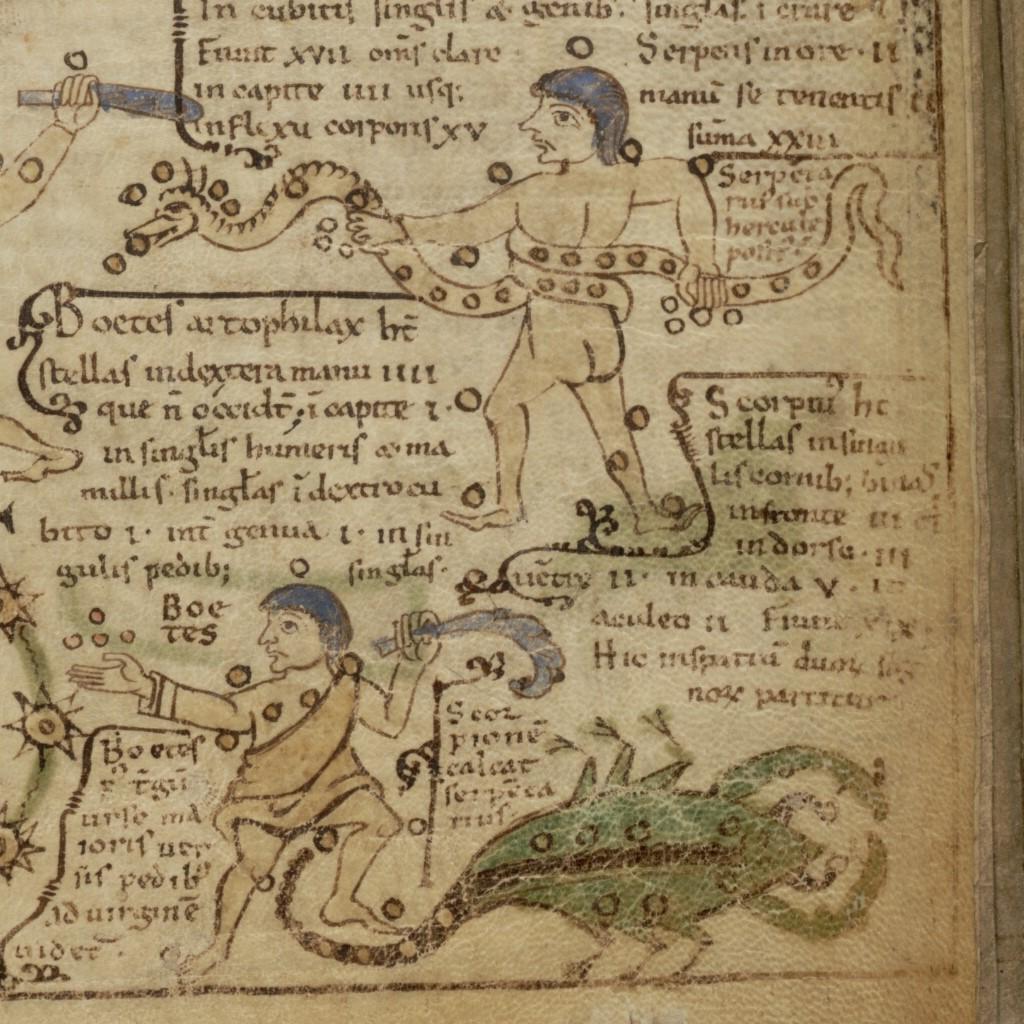 In cubitis singlis & genib. singlas. i crure
Fiunt xvii om̄s clare
in capite iiii usq;
inflexū corporis xv
Serpens in ore · ii
manū se tenentis
sūma xxiii
Serpen
rius sup
hercule
Boetes arctophilax ht̄
stellas in dextera manu iiii
que n̄ occidt̄; ī capite i ·
in singlis humeris & ma
millis · singlas ī dextro cu
bito i · int̄ genua i · in sin
gulis pedib; singlas ·
Boe
tes
Scorpiu̅ ht
stellas in singu
lis cornib; binas
in fronte iii
in dorso · iii
uētre ii · in cauda v ·
aculeo ii Fiunt
Hic in spatiū duor
nox partitur
Scor
pionē
calcat
serpēta
rius
Boetes
urse ma
ioris
pedib'
ad uirginē
uidet ·